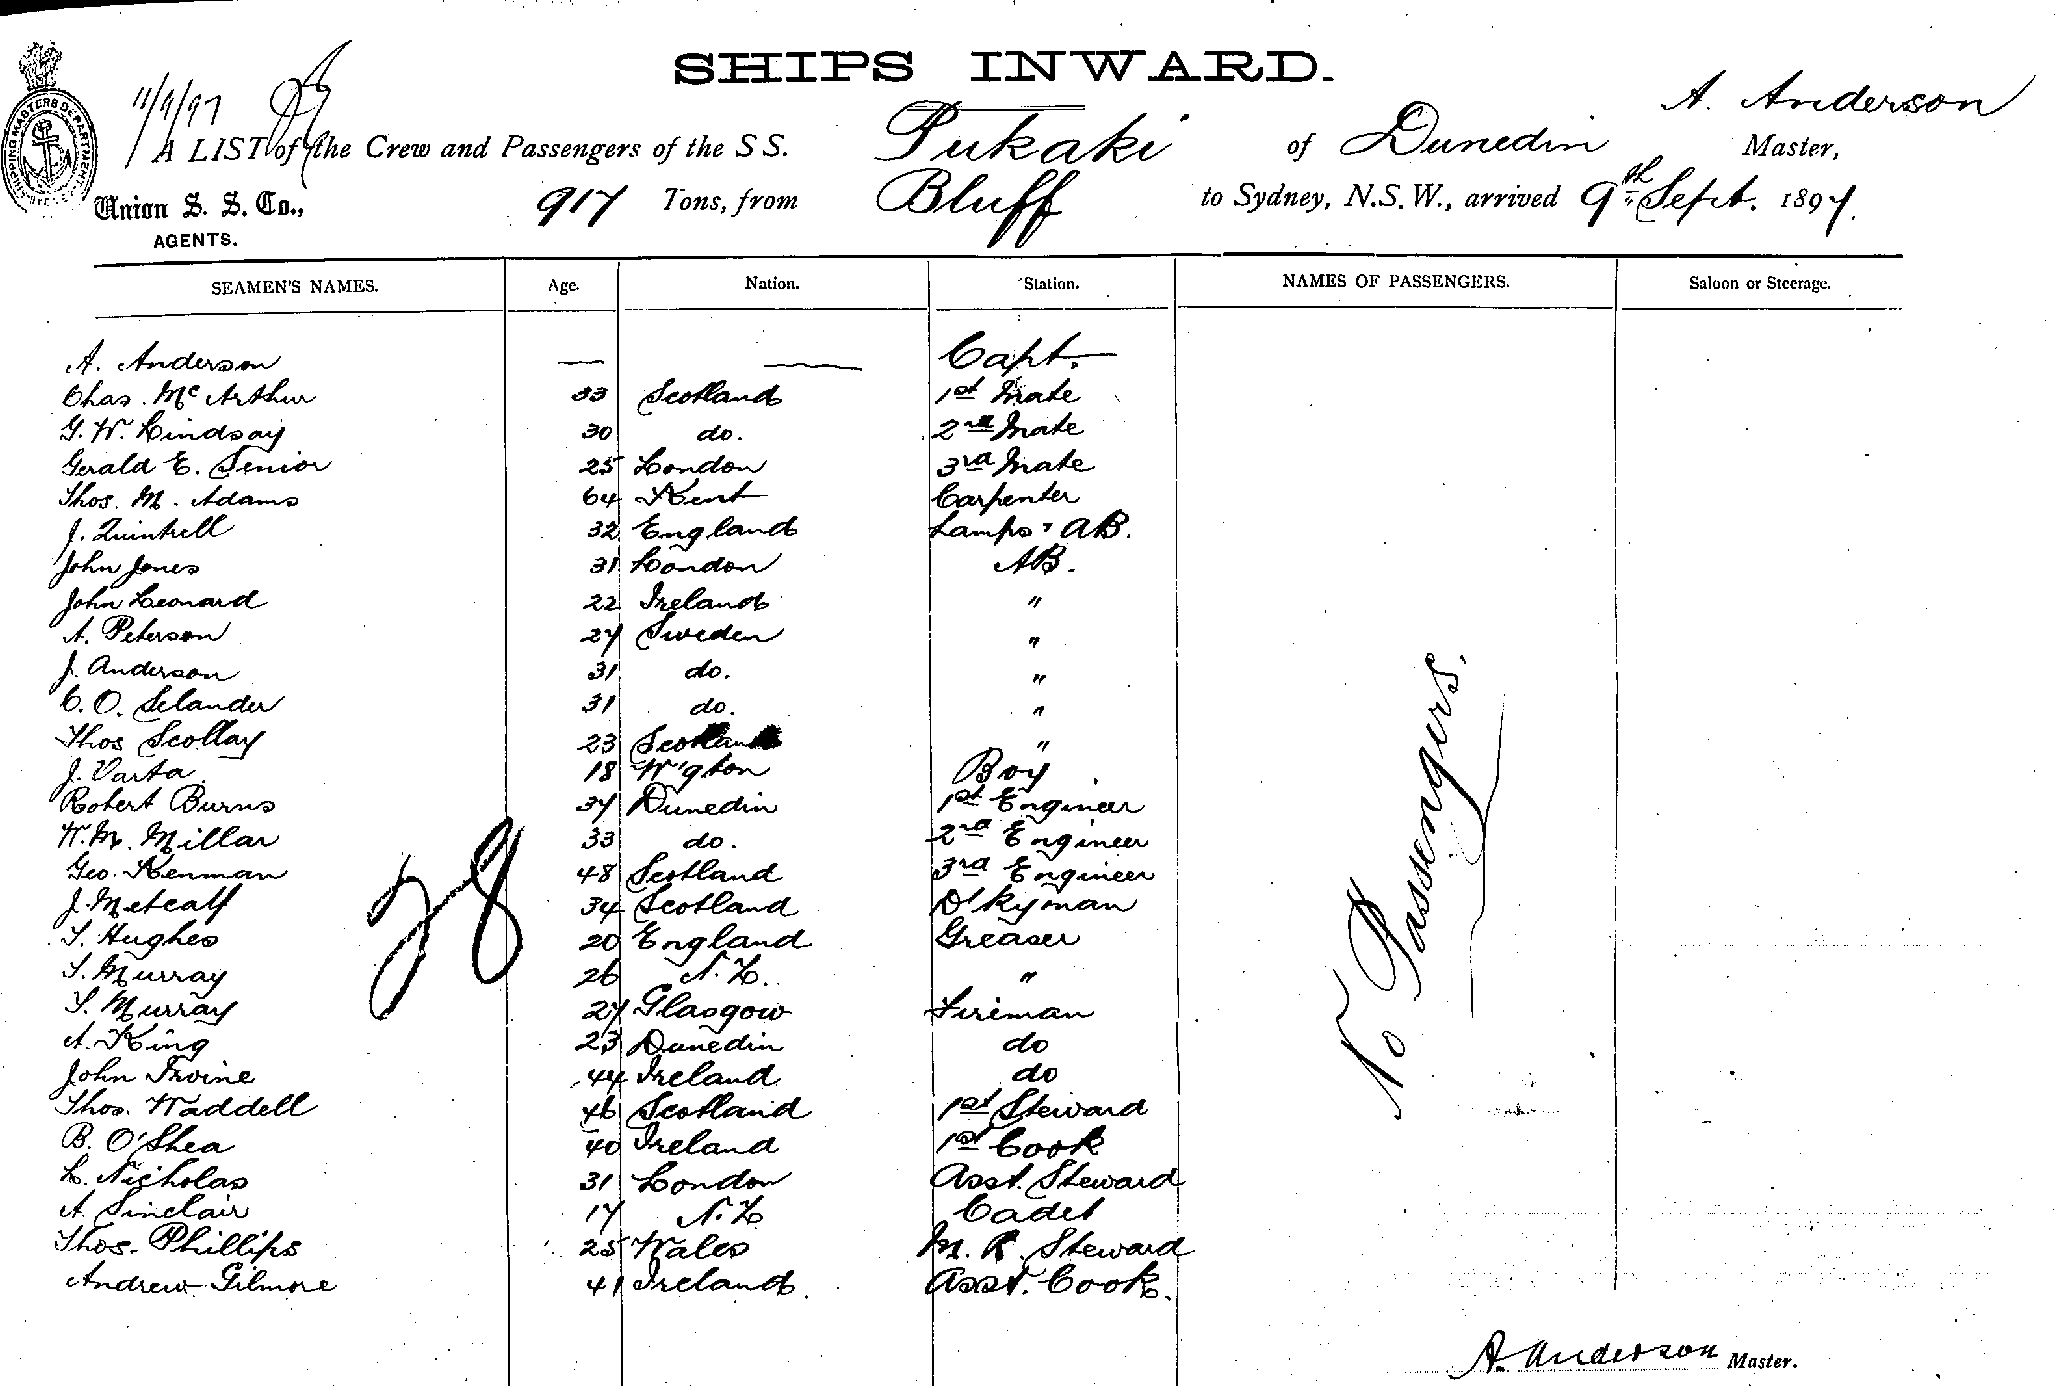 SHIPS INWARD.
11/9/97
A. Anderson
A LIST of the Crew and Passengers of the S S. Pukaki of Dunedin Master,
Union S. S. Co., 917 Tons, from Bluff to Sydney, N.S.W., arrived 9th Sept. 1897.
AGENTS.
SEAMEN'S NAMES. Age. Nation. Station. NAMES OF PASSENGERS. Saloon or Steerage.
A. Anderson — — Capt.
Chas. Mc Arthur 33 Scotland 1st Mate
G. W. Lindsay 30 do. 2nd Mate
Gerald E. Senior 25 London 3rd Mate
Thos. M. Adams 64 Kent Carpenter
J. Quintrell 32 England Lamps & AB.
John Jones 31 London AB.
John Leonard 22 Ireland "
A. Peterson 27 Sweden "
J. Anderson 31 do. "
C. O. Selander 31 do. "
Thos Scollay 23 Scotland "
J. Varta 18 W'gton Boy
Robert Burns 37 Dunedin 1st Engineer
W. M. Millar 33 do. 2nd Engineer
Geo. Kenman 48 Scotland 3rd Engineer
J. Metcalf 34 Scotland D'kyman
T. Hughes 20 England Greaser
T. Murray 26 N. Z. "
T. Murray 27 Glasgow Fireman
A. King 23 Dunedin do
John Irvine 44 Ireland do
Thos. Waddell 46 Scotland 1st Steward
B. O'Shea 40 Ireland 1st Cook
L. Nicholas 31 London Asst. Steward
A. Sinclair 17 N. Z Cadet
Thos. Phillips 25 Wales M. R. Steward
Andrew Gilmore 41 Ireland. Asst. Cook.
28
No Passengers.
A. Anderson Master.